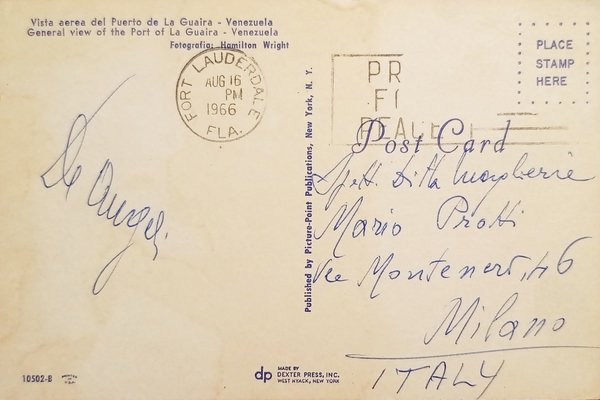 Vista aerea del Puerto de La Guaira - Venezuela
General view of the Port of La Guaira - Venezuela
Fotografia: Hamilton Wright
FORT LAUDERDALE
AUG 16
PM
1966
FLA.
PR
FI
PLACE
STAMP
HERE
Post Card
De Angeli
Spett. Ditta
Mario Protti
Milano
ITALY
Published by Picture-Point Publications, New York, N. Y.
10502-B
dp
MADE BY
DEXTER PRESS, INC.
WEST NYACK, NEW YORK